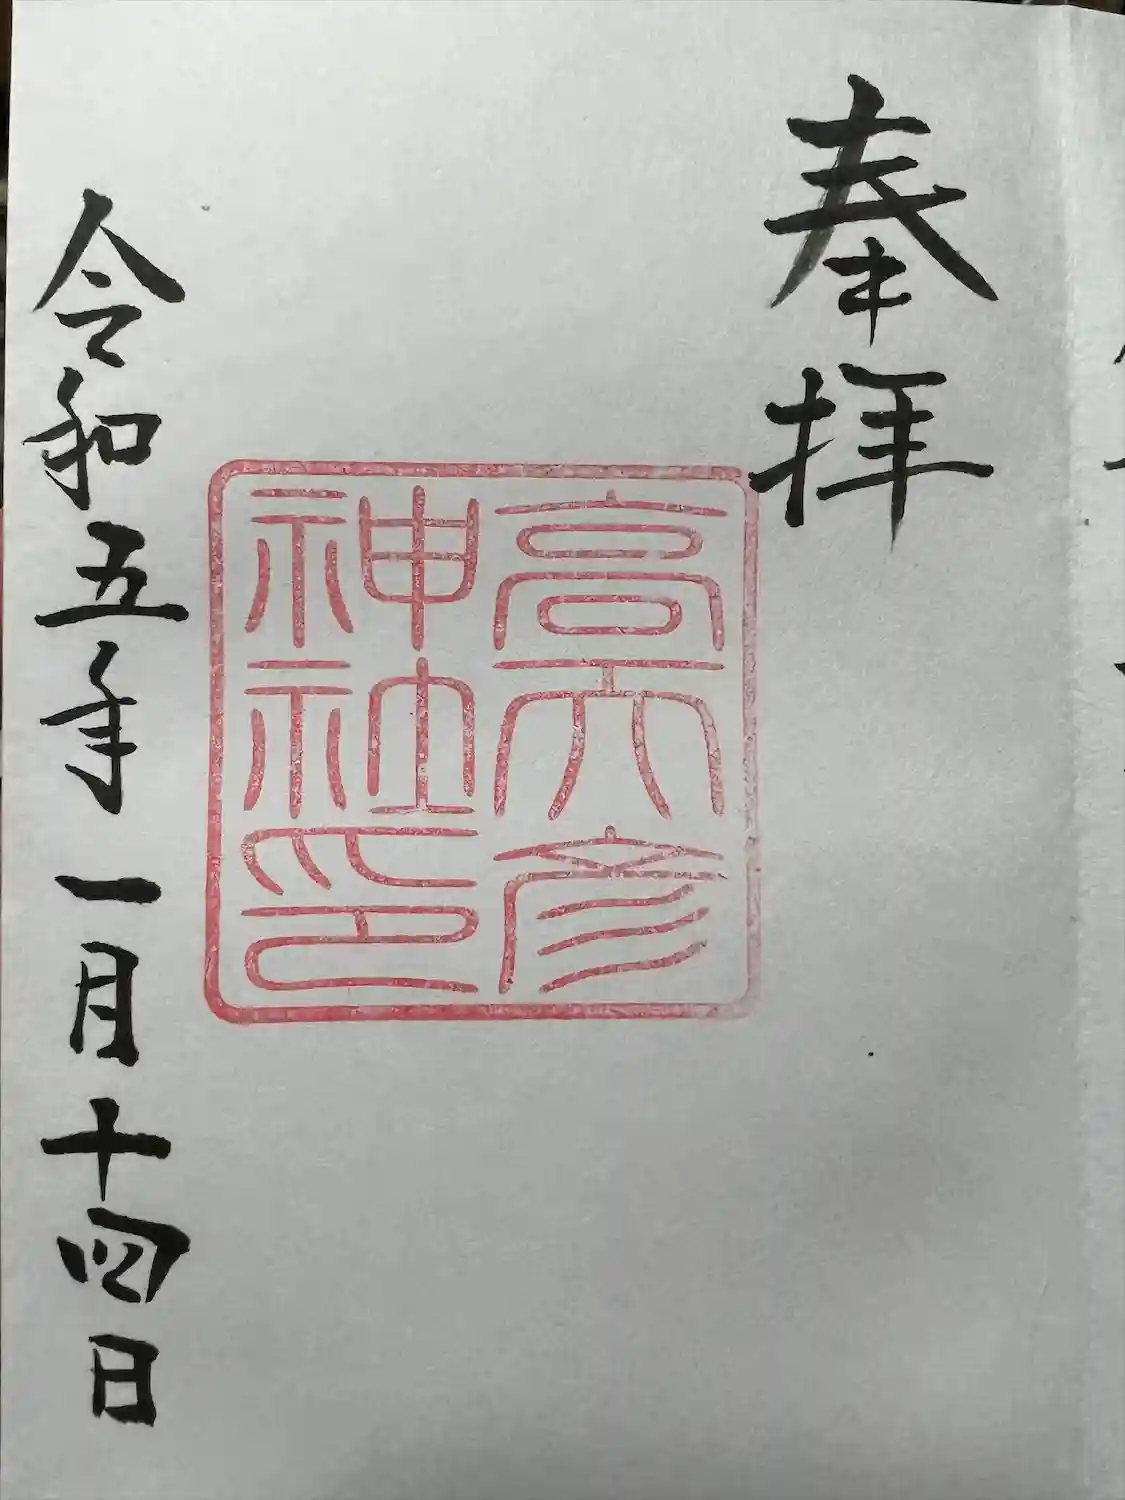 奉拝
高天彦
神社印
令和五年一月十四日